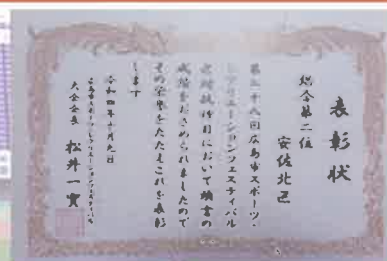 表彰状
総合第二位
安佐北区
第三十八回広島市スポーツ・
レクリエーションフェスティバル
区対抗種目において頭書の
成績をおさめられましたので
その栄誉をたたえこれを表彰
します
令和四年十月九日
広島市スポーツ・レクリエーションフェスティバル
大会会長 松井一實